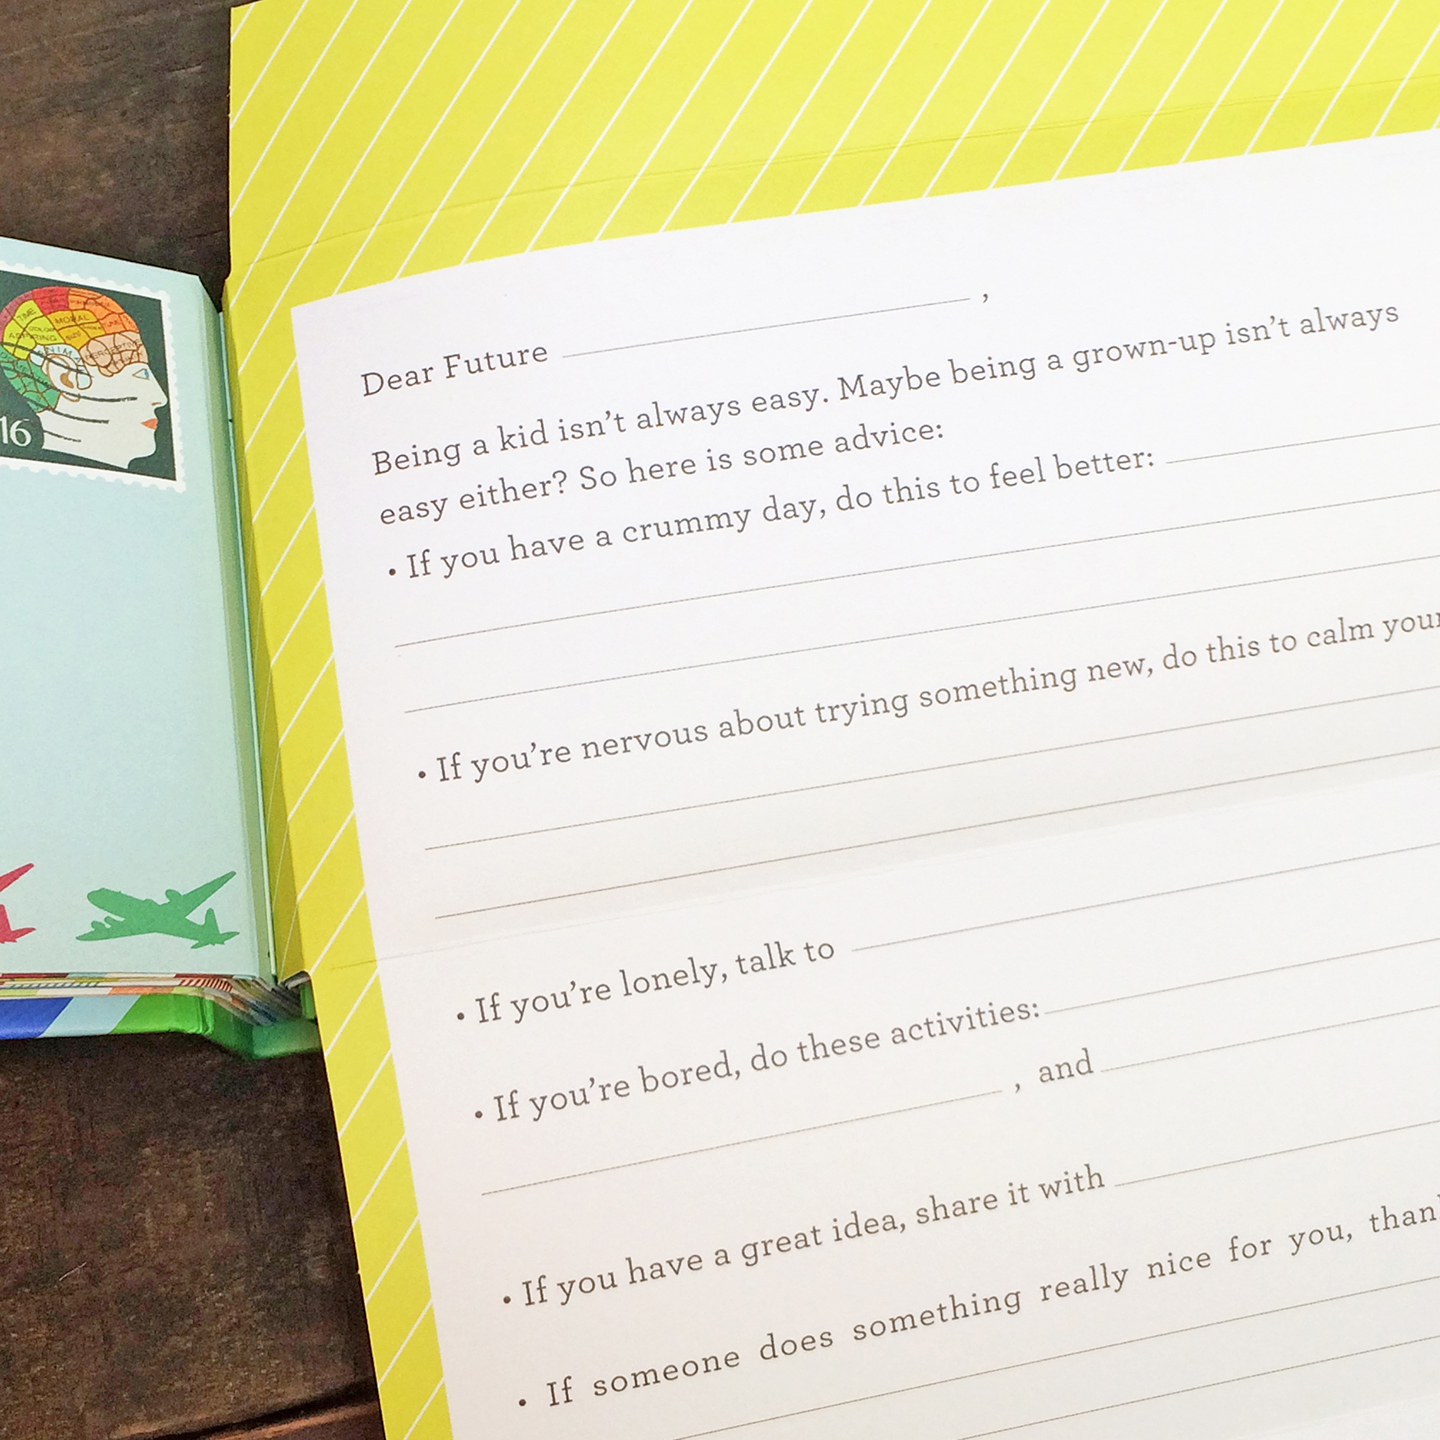 TIME
MORAL
COLOR
SIZE
16
Dear Future ,
Being a kid isn't always easy. Maybe being a grown-up isn't always
easy either? So here is some advice:
• If you have a crummy day, do this to feel better:
• If you're nervous about trying something new, do this to calm your
• If you're lonely, talk to
• If you're bored, do these activities:
, and
• If you have a great idea, share it with
• If someone does something really nice for you, than